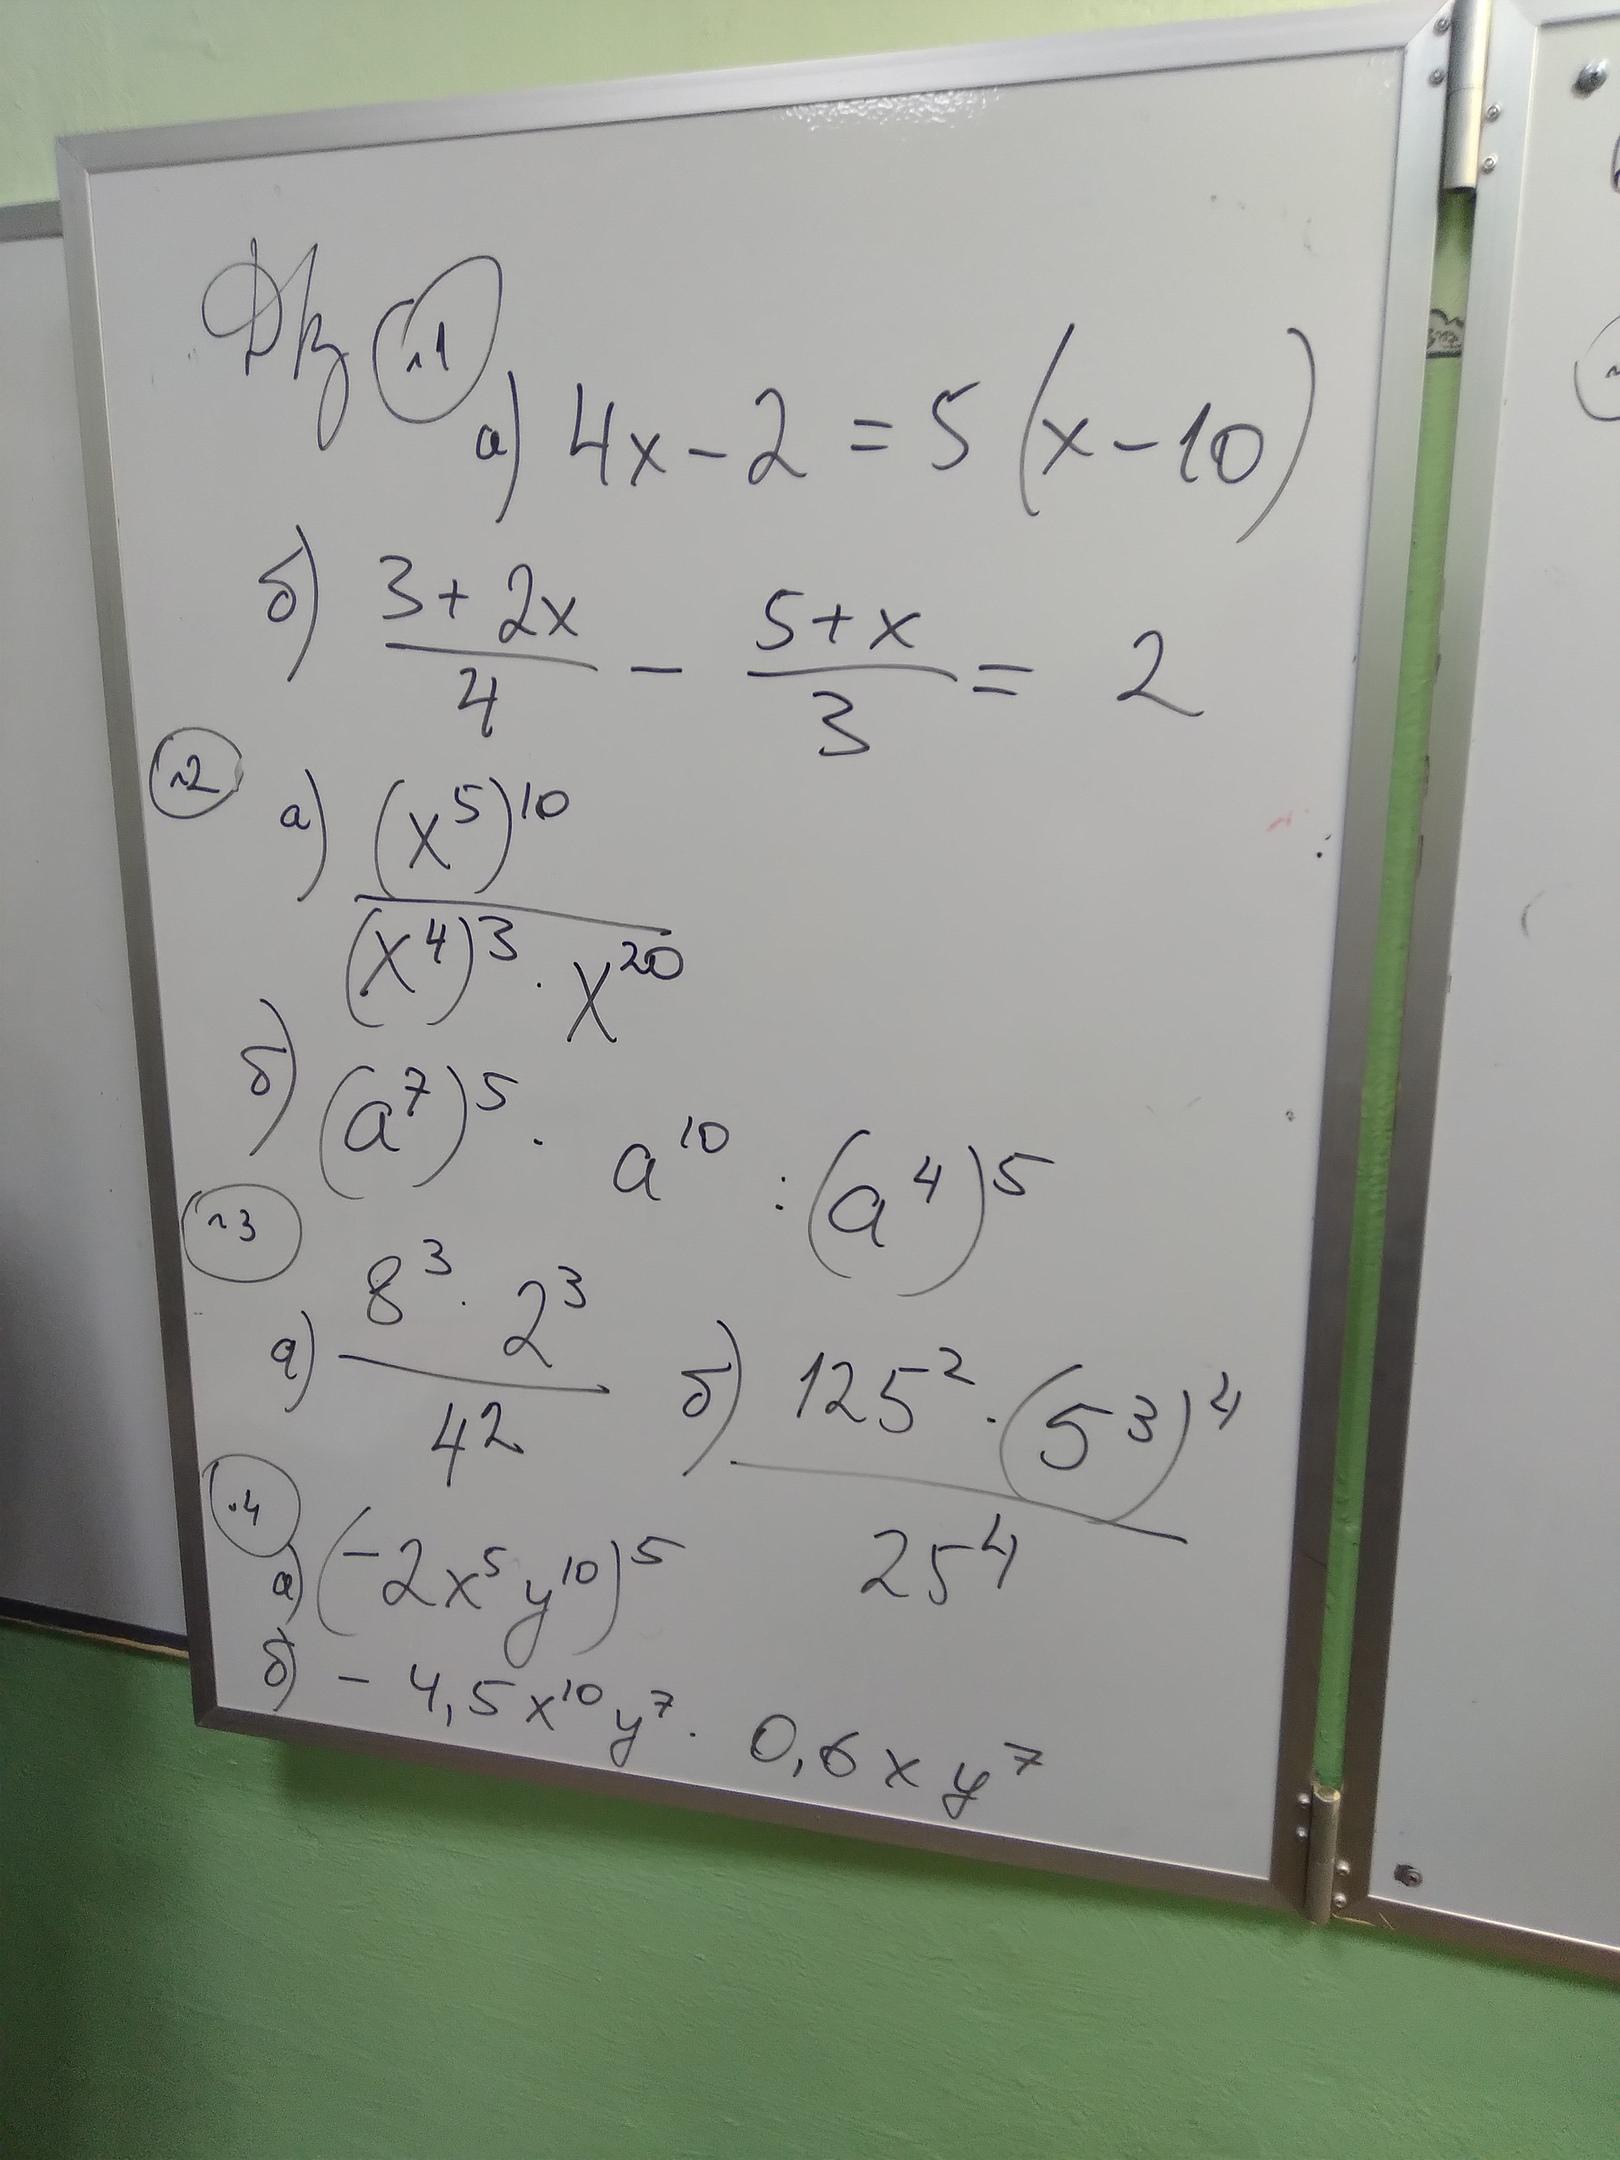 Дз №1
а) 4x - 2 = 5 (x - 10)
б) (3 + 2x)/4 - (5 + x)/3 = 2
№2
а) (x⁵)¹⁰ / (x⁴)³ · x²⁰
б) (a⁷)⁵ · a¹⁰ : (a⁴)⁵
№3
а) 8³ · 2³ / 4² б) 125² · (5³)⁴ / 25⁴
№4
а) (-2x⁵y¹⁰)⁵
б) - 4,5x¹⁰y⁷ · 0,6xy⁷